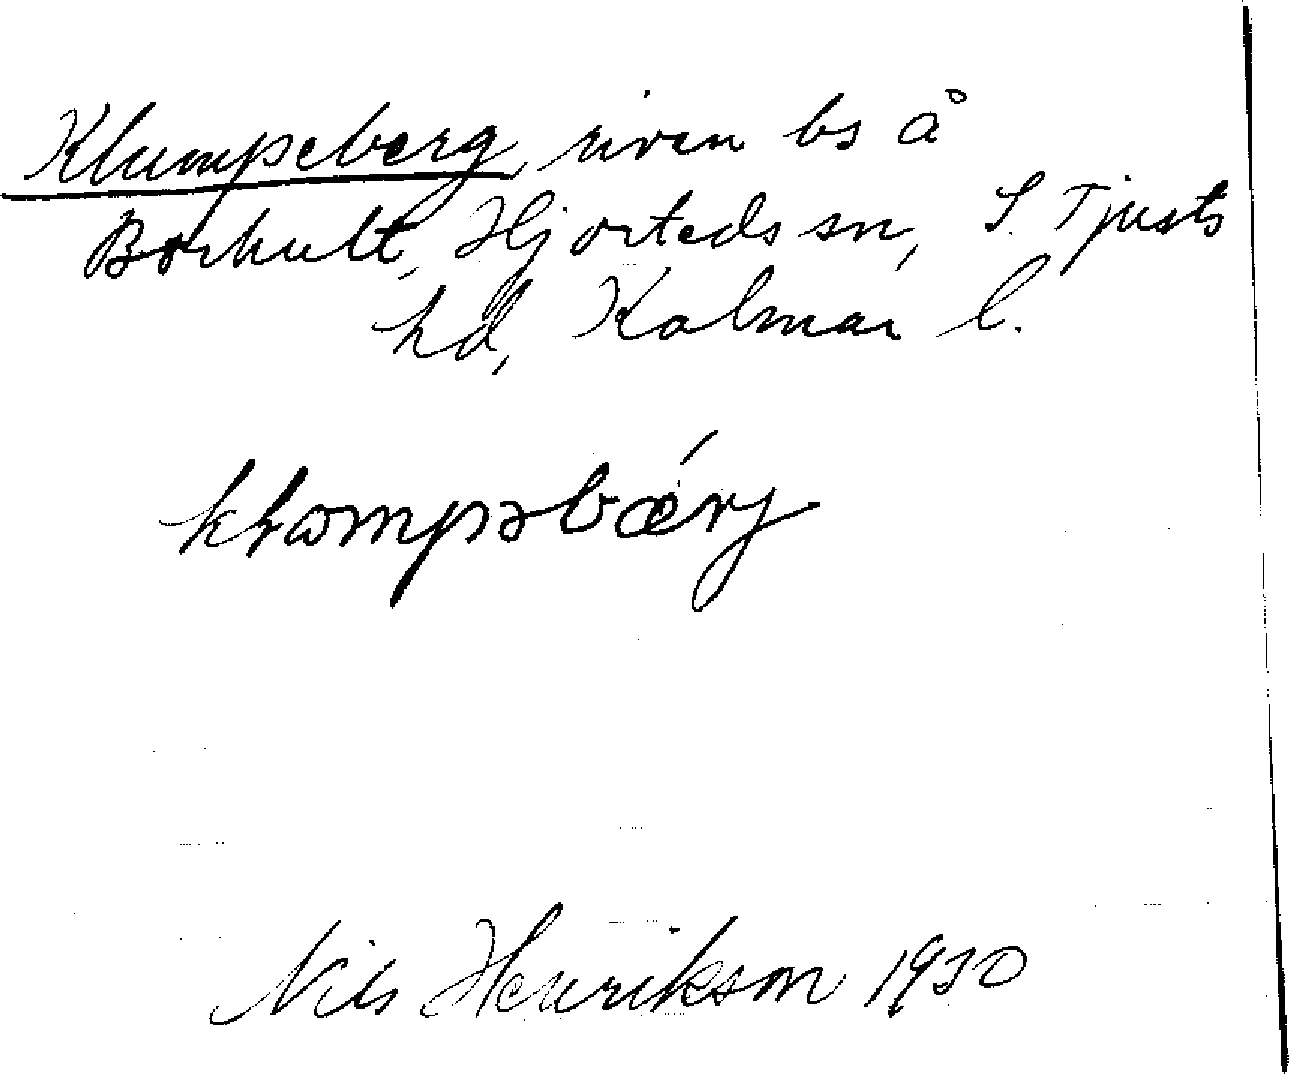 Klumpeberg, riven bs å
Borhult, Hjorteds sn, S. Tjusts
hd, Kalmar l.
kɫompəbǽrj
Nils Henrikson 1930